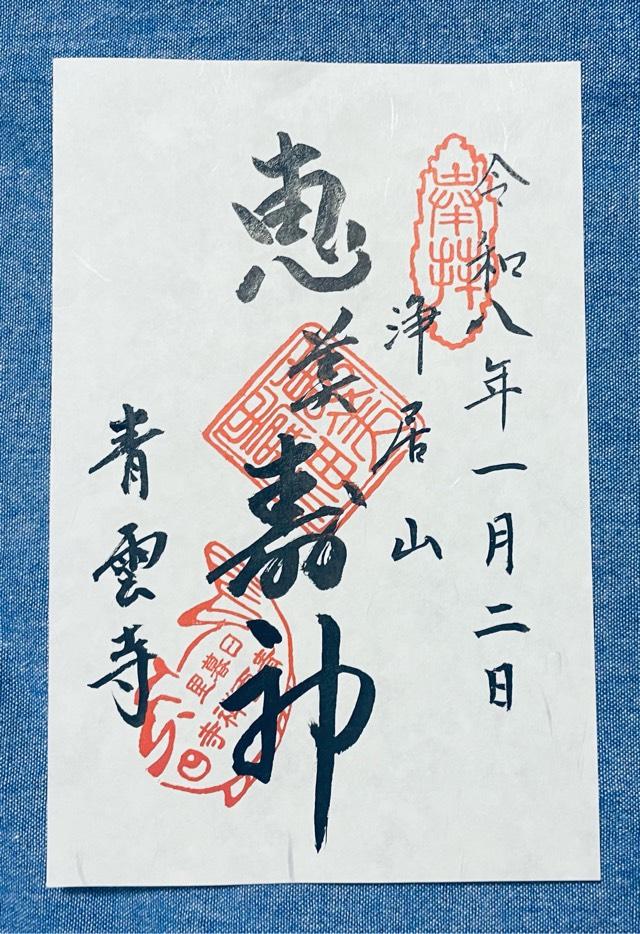 奉拝
令和八年一月二日
浄居山
恵美寿神
日暮里
青雲寺